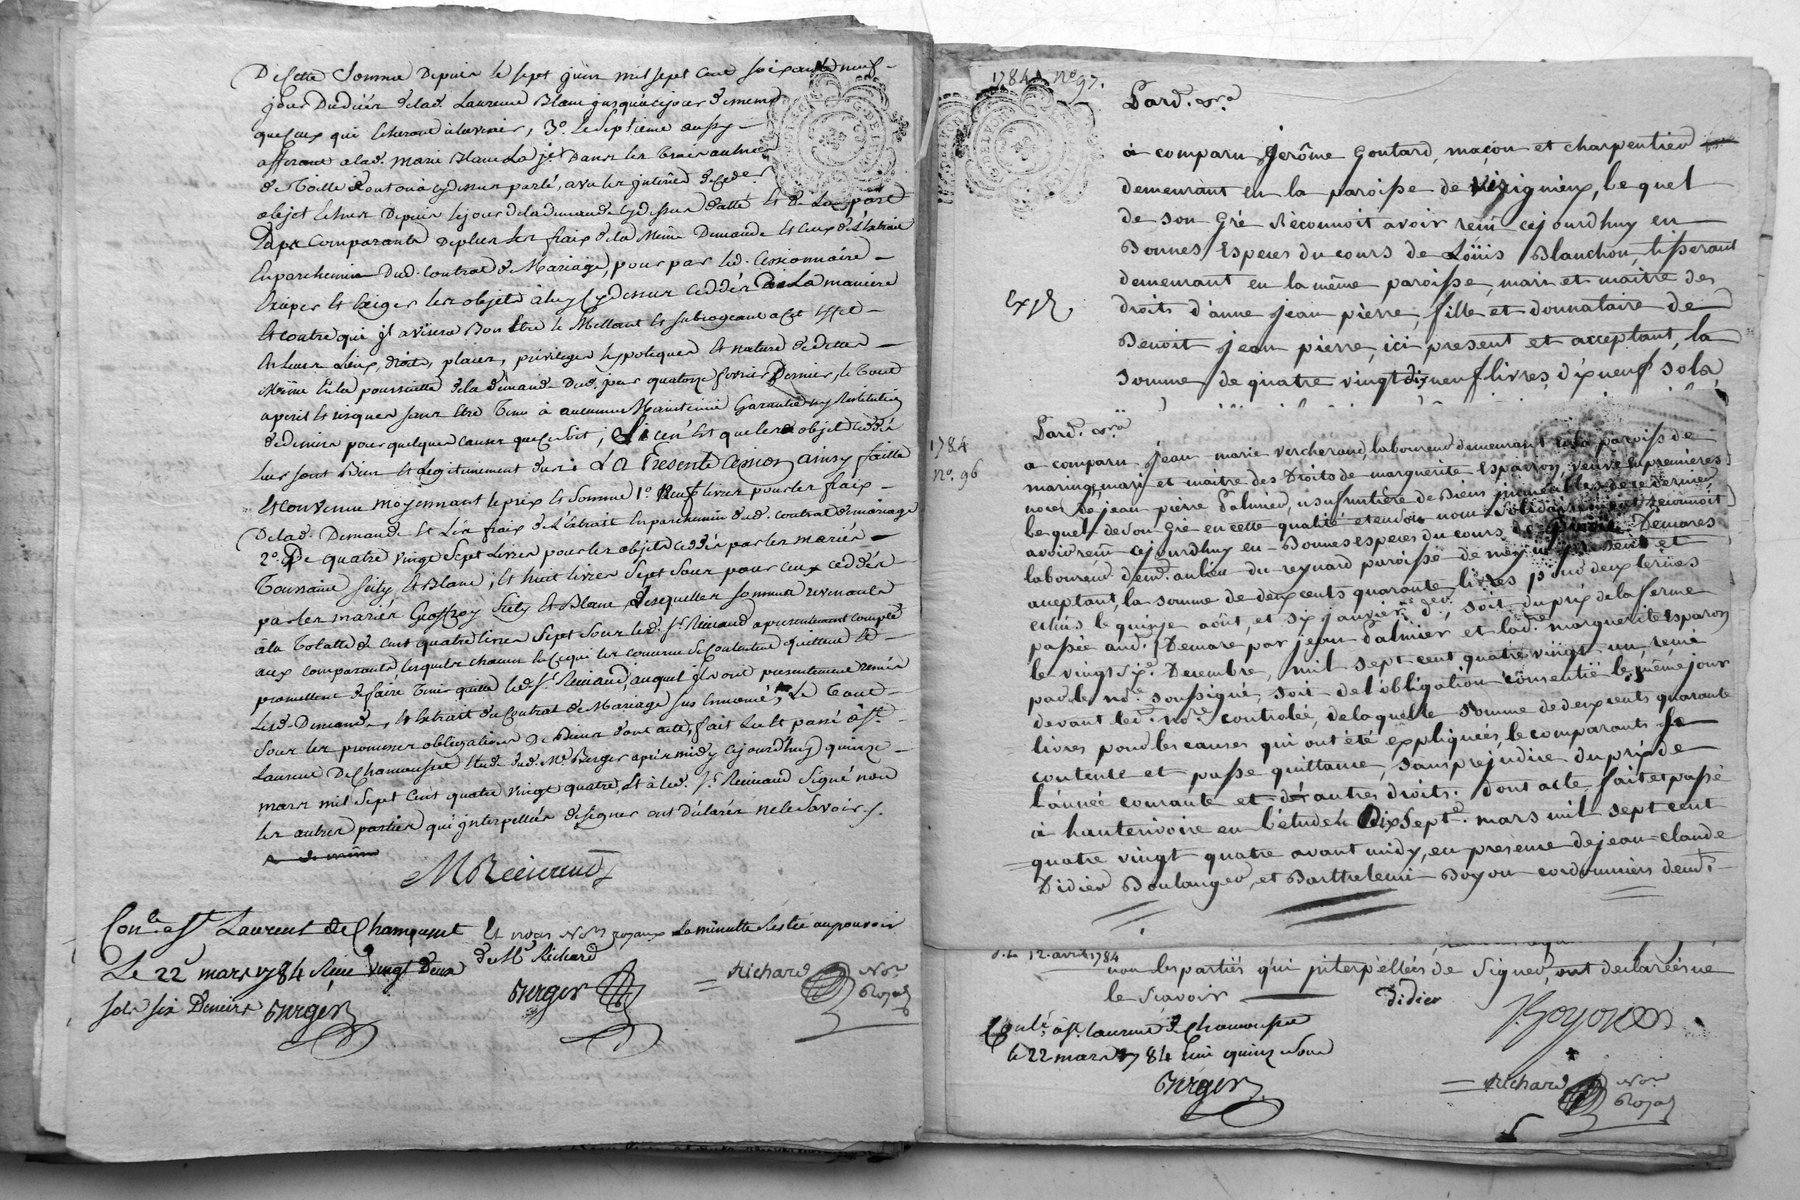 De cette somme depuis le sept juin mil sept cent soixante neuf
jour du décès de lad. Laurence Blanc jusqu'à ce jour de meme
que ceux qui écherront à l'avenir, 3°. le septieme aussy
afferant à lad. marie Blanc La je dans les trois aulnes
de Toille dont on a cy dessus parlé, avec les intérêts de cedes
objet échus depuis le jour de la demande cy dessus datté et de La part
Enparchemin dud. contrat de Mariage, pour par led. Cessionnaire
Exiger les objets à luy cy dessus ceddés De La maniere
et contre qui il avisera Bon être le Mettant et subrogeant a cet effet
et leurs lieux, droits, places, privileges hypotéques et nature de dettes
même à la poursuitte de la demande dud. jour quatorze fevrier dernier, le tout
de deniers pour quelque cause que ce soit, Si ce n'est que les objets ceddés
Lui sont Bien et légitimement dus : La Presente cession ainsy faitte
et convenue moyennant le prix et somme 1°. Neuf livres pour les fraix
De lad. Demande et les fraix de l'Extrait en parchemin dud. contrat de mariage
2°. De quatre vingt sept Livres pour les objets ceddés par les mariés
Toussaint et Blanc ; et huit livres sept sous pour ceux ceddés
par les mariés Geoffroy et Blanc, desquelles sommes revenants
à la Totalité de cent quatre livres sept sous led. Sr. Reinaud a presentement compté
aux comparants, lesquels chacun en ce qui les concerne se contentent quittent et
promettent de faire Tenir quitte led. Sr. Reinaud, auquel ils ont presentement remis
Lad. Demande, et Extrait du Contrat de Mariage sus Ennoncé ; Le tout
sous les promesses obligations De Biens dont acte, fait lu et passé à St.
Laurent De Chamousset Etude dud. Me. Berger après midy cejourd'huy quinze
mars mil sept Cent quatre vingt quatre, et à led. Sr. Reinaud signé non
les autres parties qui interpellées de signer ont déclarés ne le savoir /.
MReinaud
Conlé. à St. Laurent de Chamousset Et nous Nore. royaux La minutte Restée au pouvoir
Le 22 mars 1784 Reçu vingt deux de Me Richard
sols six Deniers Berger
Berger
Richard Nore Royal
1784 N°. 97.
Pard. Nre.
à comparu Jerôme Goutard, maçon et charpentier
demeurant en la paroisse de Virigneux, lequel
de son Gré Réconnoit avoir reçu cejourdhuy en
Bonnes Especes du cours de Loüis Blanchon, tisserant
demeurant en la même paroisse, mari et maitre des
Expé.
droits d'anne Jean pierre, fille et donnataire de
Benoit Jean pierre, ici present et acceptant, la
somme de quatre vingt dix neuf livres, dix neuf sols
1784
N°. 96
Pard. Nre.
a comparu Jean marie vercherand, laboureur demeurant en la paroisse de
maringe, mari et maitre des Droits de marguerite Esparron, veuve en premieres
noces de jean pierre Dalmier, usufruitiere de Biens immeubles de ce dernier
lequel de son Gré en cette qualité et en son nom solidairement reconnoit
avoir reçu cejourdhuy en Bonnes especes du cours de Demare
laboureur demt. au lieu du reynard paroisse de meys present et
acceptant, la somme de deux cents quarante livres pour deux termes
echus le quinze août, et six janvier der., soit du prix de la ferme
passée aud. Demare par jean Dalmier et lad. marguerite Esparron
le vingt six Decembre, mil sept cent quatre vingt un, reçue
par le nore. soussigné, soit de l'obligation consentië le même jour
devant led. nore. controlée, de laquelle somme de deux cents quarante
livres pour les causes qui ont été expliquées, le comparants se
contente et passe quittance, sans prejudice du prix de
l'année courante et des autres droits. dont acte fait et passé
à hauterivoire en l'étude le Dix Sept. mars mil sept cent
quatre vingt quatre avant midy, en presence de jean-claude
Didier Boulanger, et Barthelemi Boyon cordonniers demts.
12 avril 1784
non les partiës qui interpéllées de signer, ont declarées ne
le sçavoir Didier
Boyon
Conlé. à St. Laurent de Chamousset
le 22 mars 1784 reçu quinze sous
Berger
Richard Nore Royal